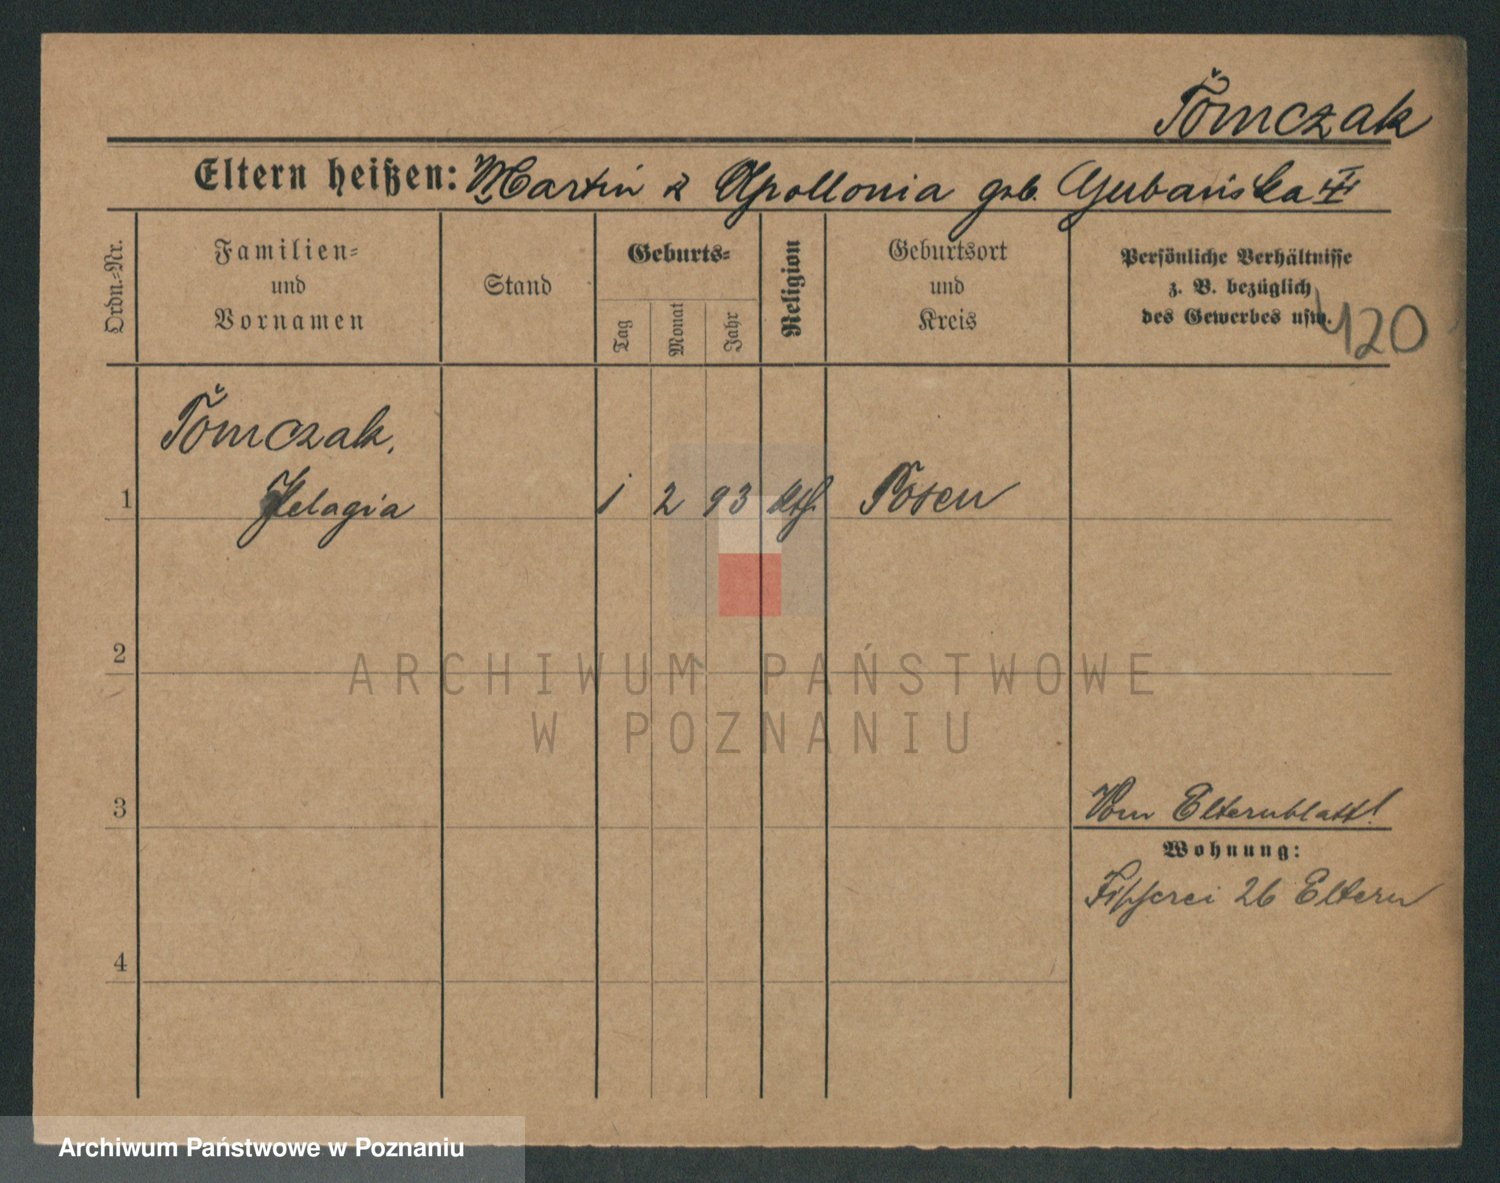 Tomczak
Eltern heißen: Martin & Apollonia geb.
Ordn.-Nr.
Familien-
und
Vornamen
Stand
Geburts-
Tag
Monat
Jahr
Religion
Geburtsort
und
Kreis
Persönliche Verhältnisse
z. B. bezüglich
des Gewerbes usw.
420
Tomczak,
1 Pelagia 1 2 93 kth. Posen
2
ARCHIWUM PAŃSTWOWE
W POZNANIU
3
Vom Elternblatt!
Wohnung:
Fischerei 26 Eltern
4
Archiwum Państwowe w Poznaniu